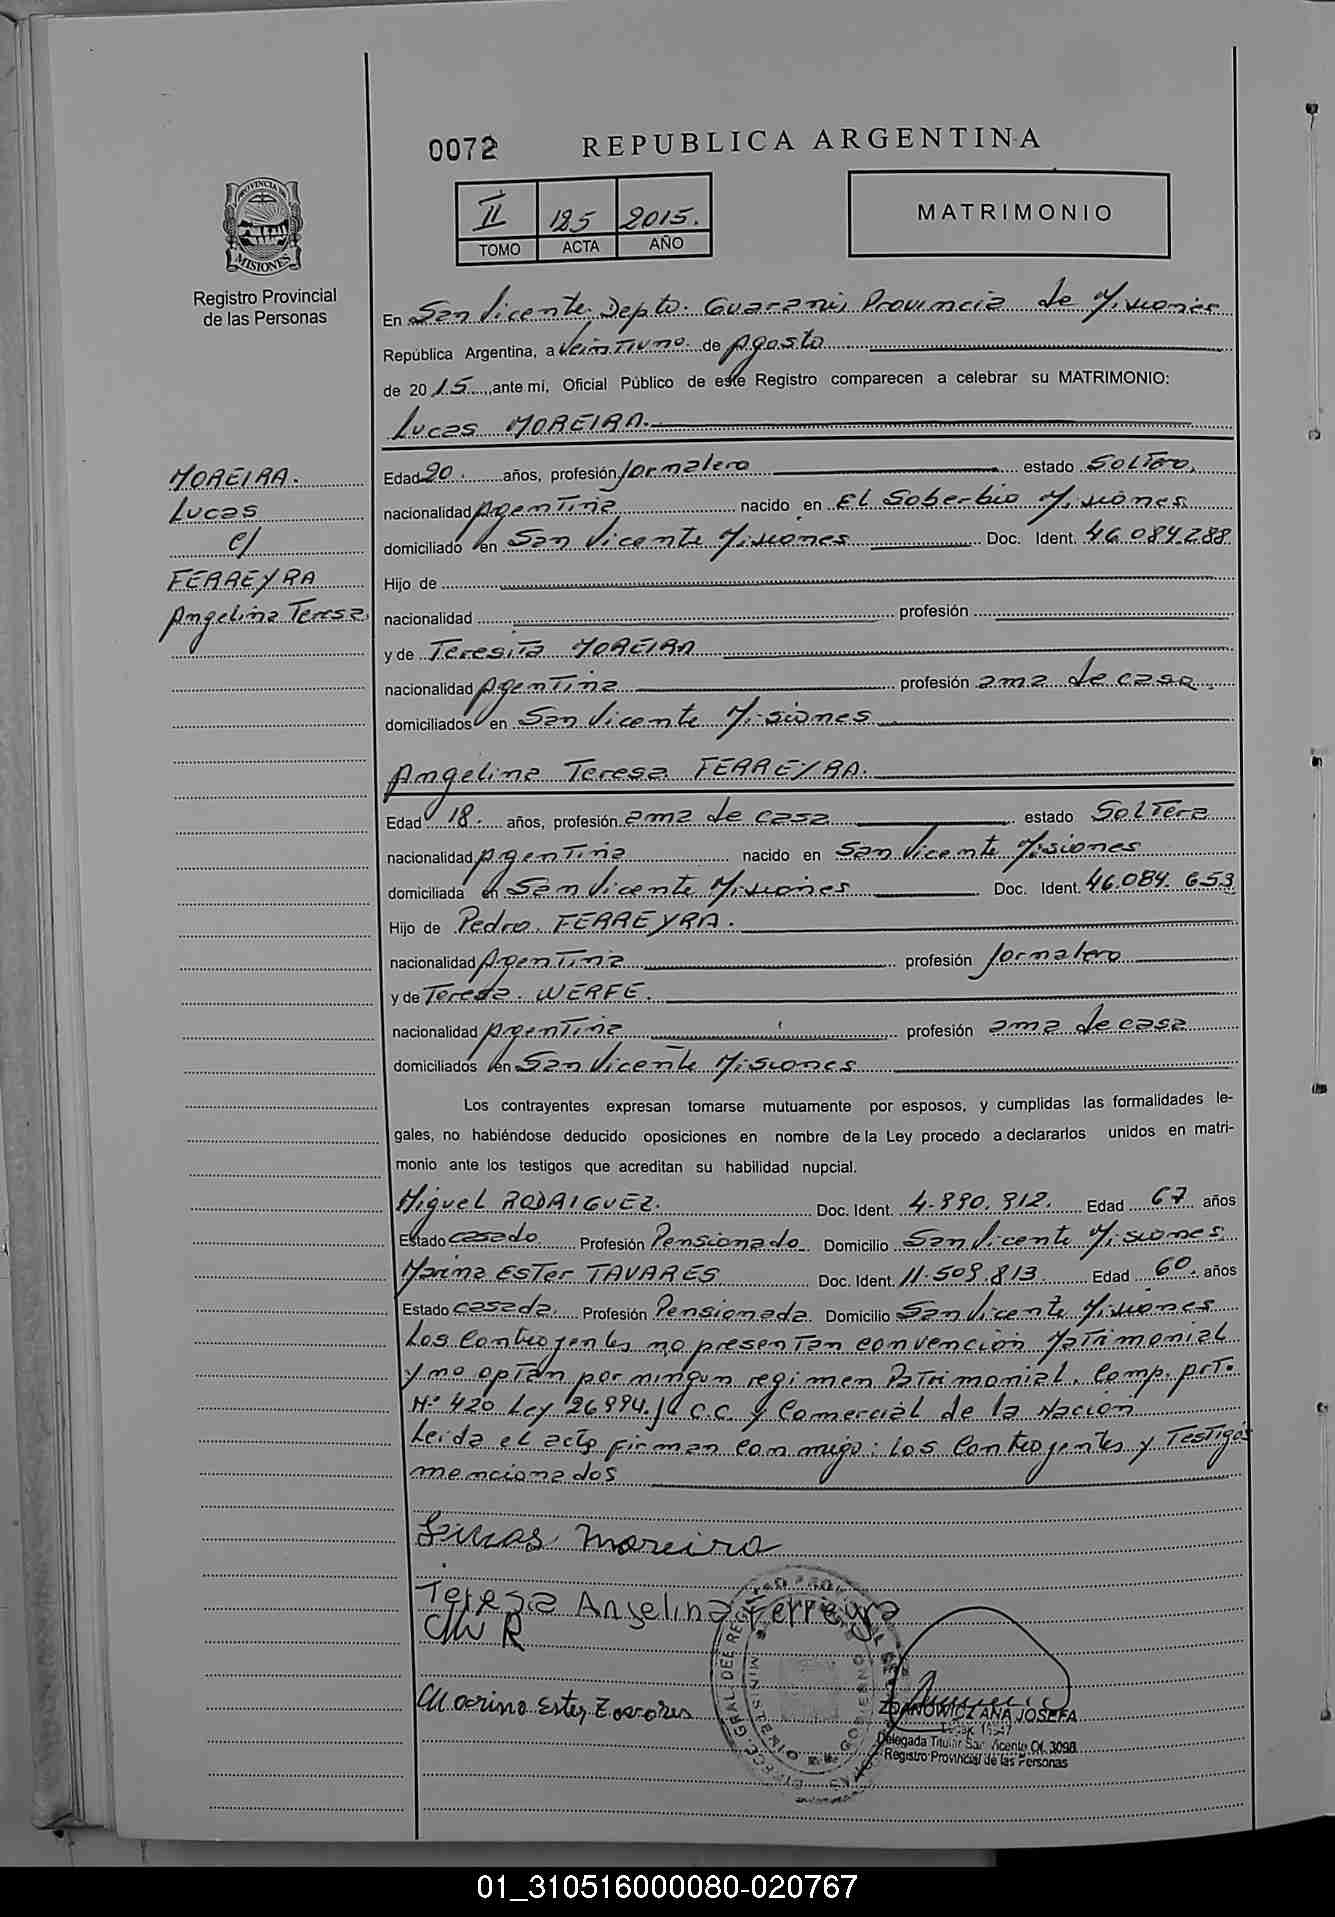 0072 REPUBLICA ARGENTINA
II 125 2015.
TOMO ACTA AÑO
MATRIMONIO
PROVINCIA DE
MISIONES
Registro Provincial
de las Personas
En San Vicente. Depto. Guarani, Provincia de Misiones
República Argentina, a Veintiuno de Agosto
de 20 15 , ante mi, Oficial Público de este Registro comparecen a celebrar su MATRIMONIO:
Lucas MOREIRA.
MOREIRA.
Lucas
c/
FERREYRA
Angelina Teresa.
Edad 20. años, profesión Jornalero estado Soltero.
nacionalidad Argentina nacido en El Soberbio Misiones.
domiciliado en San Vicente Misiones Doc. Ident. 46.084.288
Hijo de
nacionalidad profesión
y de Teresita MOREIRA
nacionalidad Argentina profesión ama de casa.
domiciliados en San Vicente Misiones
Angelina Teresa FERREYRA.
Edad 18. años, profesión ama de casa estado Soltera
nacionalidad Argentina nacido en San Vicente Misiones
domiciliada en San Vicente Misiones Doc. Ident. 46.084.653
Hijo de Pedro FERREYRA.
nacionalidad Argentina profesión Jornalero
y de Teresa. WERFE.
nacionalidad Argentina profesión ama de casa
domiciliados en San Vicente Misiones
Los contrayentes expresan tomarse mutuamente por esposos, y cumplidas las formalidades le-
gales, no habiéndose deducido oposiciones en nombre de la Ley procedo a declararlos unidos en matri-
monio ante los testigos que acreditan su habilidad nupcial.
Miguel RODRIGUEZ. Doc. Ident. 4.990.912. Edad 67 años
Estado casado Profesión Pensionado. Domicilio San Vicente Misiones.
Marina Ester TAVARES Doc. Ident. 11.509.813. Edad 60. años
Estado casada. Profesión Pensionada. Domicilio San Vicente Misiones
Los Contrayentes no presentan convención Matrimonial
y no optan por ningun regimen Patrimonial. Comp. Art.
Nº 420 Ley 26994. C.C. y Comercial de la Nación
Leida el acta firman conmigo: Los Contrayentes y Testigos
mencionados
Lucas Moreira
Teresa Angelina Ferreyra
Marina Ester Tavares
ZDANOWICZ ANA JOSEFA
Delegada Titular San Vicente Of. 3098
Registro Provincial de las Personas
01_310516000080-020767